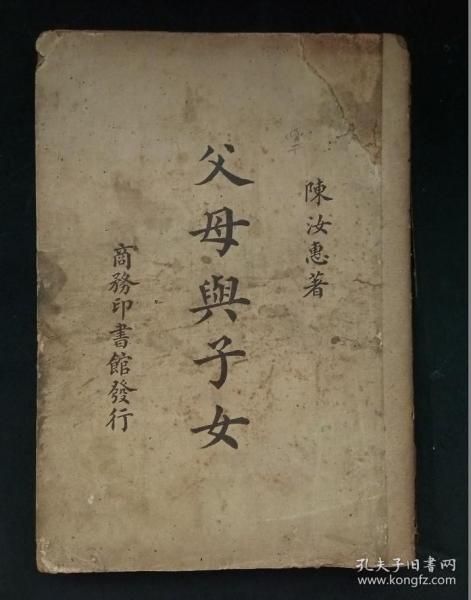 陳汝惠著
父母與子女
商務印書館發行
孔夫子旧书网
www.kongfz.com